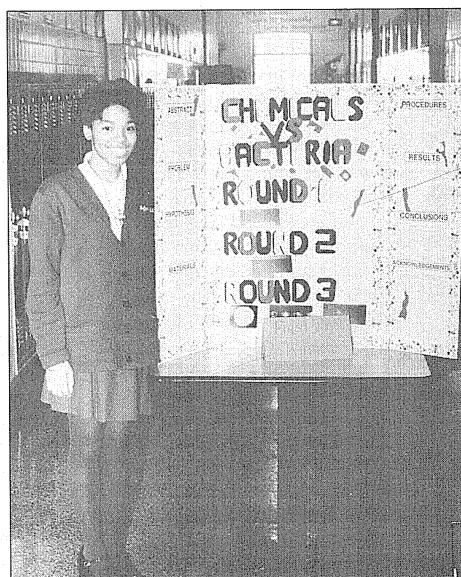 ABSTRACT
PROBLEM
HYPOTHESIS
MATERIALS
CHEMICALS
VS
BACTERIA
ROUND 1
ROUND 2
ROUND 3
PROCEDURES
RESULTS
CONCLUSIONS
ACKNOWLEDGEMENTS